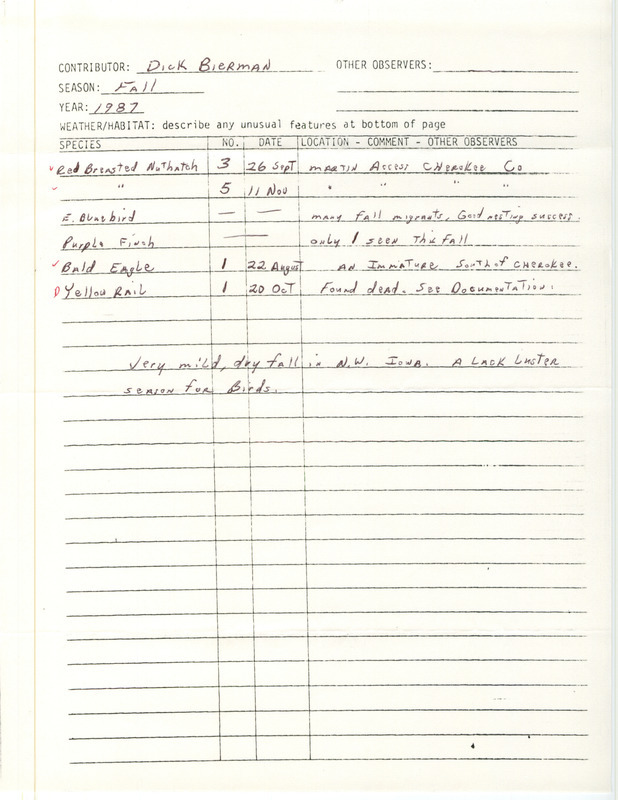 CONTRIBUTOR: Dick Bierman OTHER OBSERVERS:
SEASON: Fall
YEAR: 1987
WEATHER/HABITAT: describe any unusual features at bottom of page
SPECIES NO. DATE LOCATION - COMMENT - OTHER OBSERVERS
✓ Red Breasted Nuthatch 3 26 Sept Martin Access Cherokee Co
✓ " 5 11 Nov " " "
E. Bluebird — — many fall migrants, Good nesting success.
Purple Finch — only 1 seen this fall
✓ Bald Eagle 1 22 August an Immature South of Cherokee.
D Yellow Rail 1 20 Oct Found dead. See Documentation.
Very mild, dry fall in N.W. Iowa. A Lack Luster
season for Birds.